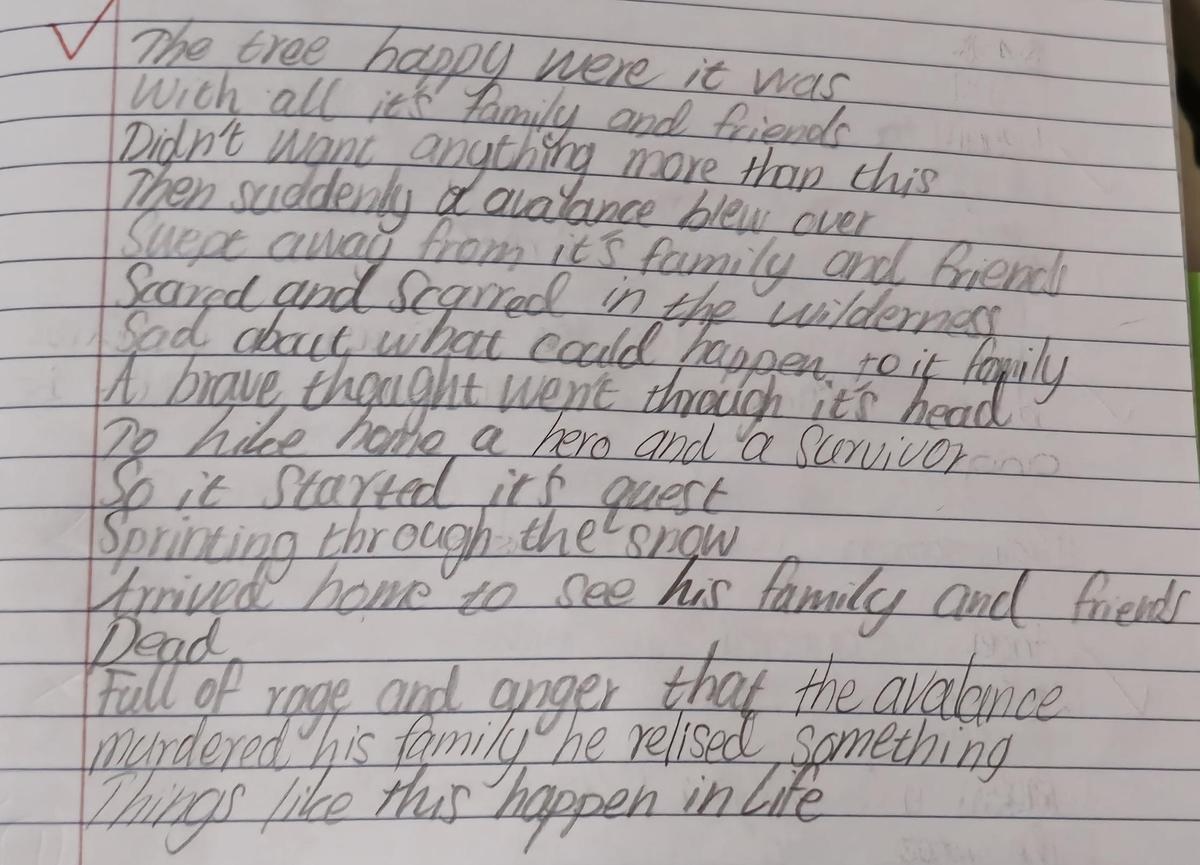 The tree happy were it was
With all it's family and friends
Didn't want anything more than this
Then suddenly a avalance blew over
Swept away from it's family and friends
Scared and Scarred in the wilderness
Sad about what could happen to it family
A brave thought went through it's head
To hike home a hero and a Survivor
So it Started it's quest
Sprinting through the snow
Arrived home to see his family and friends
Dead
Full of rage and anger that the avalance
murdered his family he relised something
Things like this happen in life